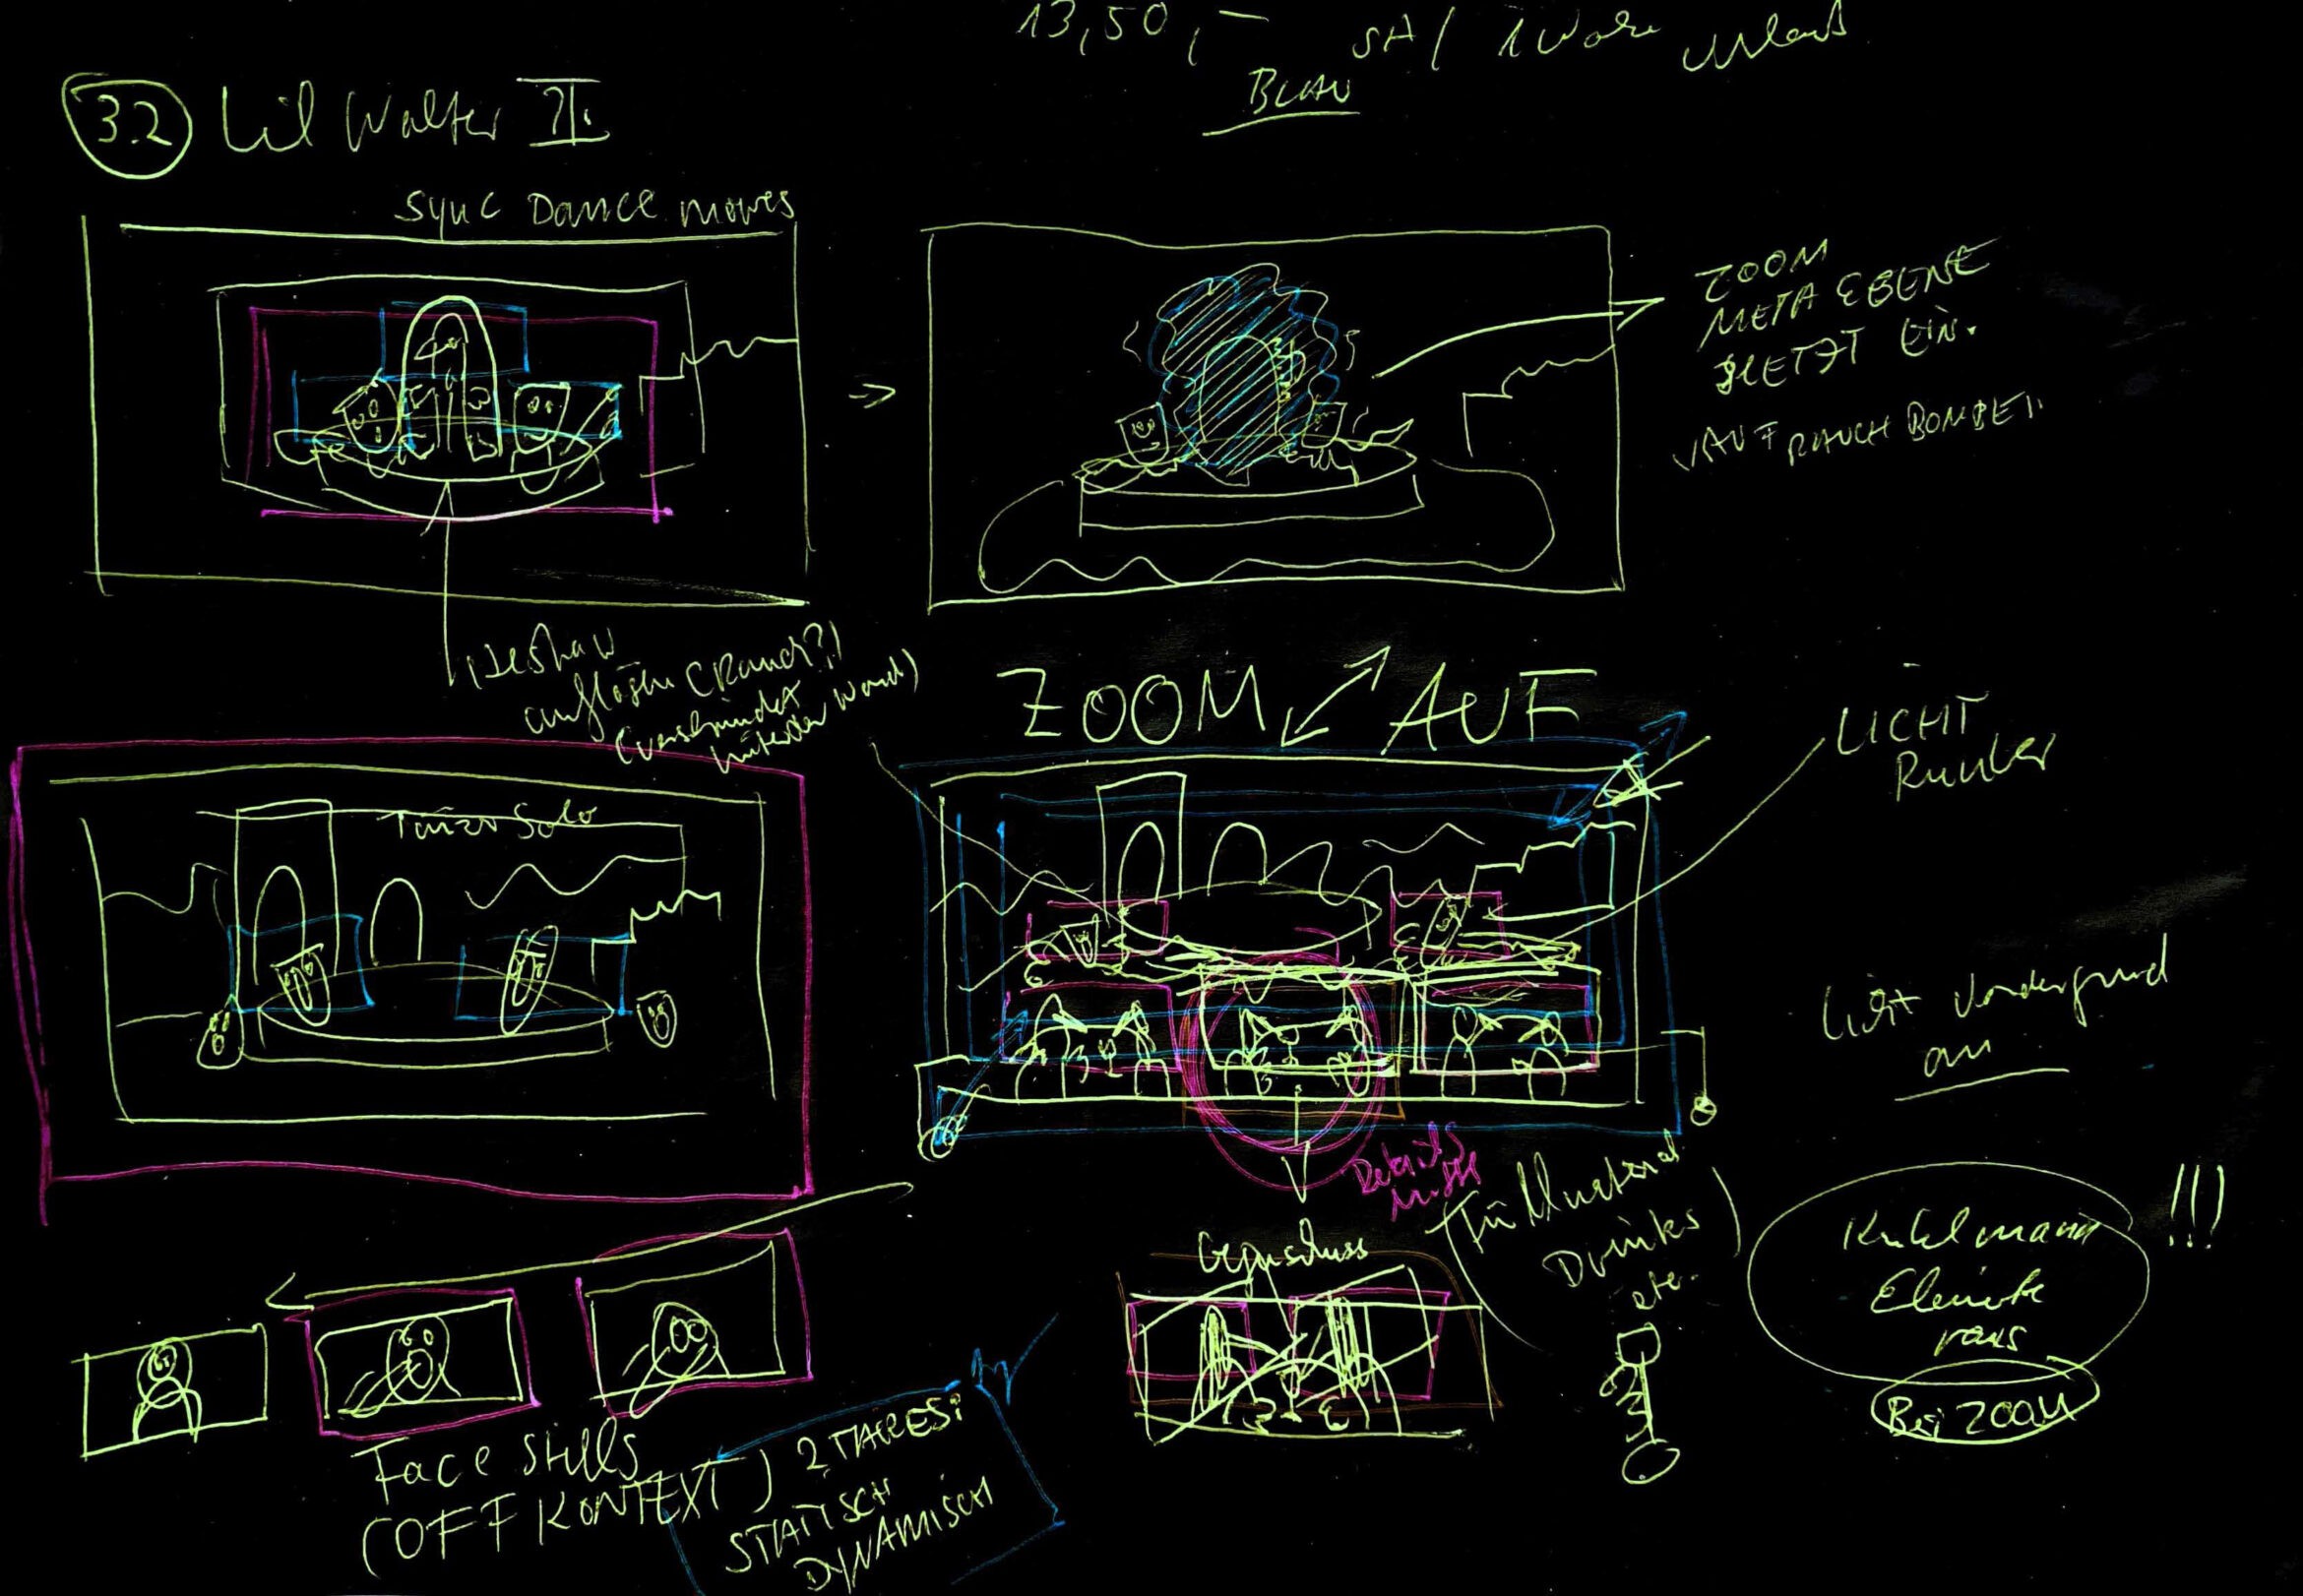 13,50,-
BLAU
3.2 Lil Walter II
Sync Dance moves
ZOOM
META EBENE
SETZT EIN.
AUF RAUCHBOMBE
auflösen (Rauch?)
(verschwindet
hinter der Wand)
ZOOM AUF
LICHT
Runter
Tänzer Solo
Licht Vordergrund
an
Details
Füllmaterial
Drinks
etc.
Gegenschuss
!!!
Elemente
raus
Bei ZOOM
Face Stills
(OFF KONTEXT)
2 TAKES:
STATISCH
DYNAMISCH